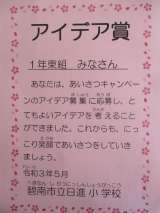 アイデア賞
1年東組 みなさん
あなたは、あいさつキャンペ
ーンのアイデア募集に応募し、と
てもよいアイデアを考えること
ができました。これからも、にっ
こり笑顔であいさつをしていき
ましょう。
令和3年5月
碧南市立日進小学校